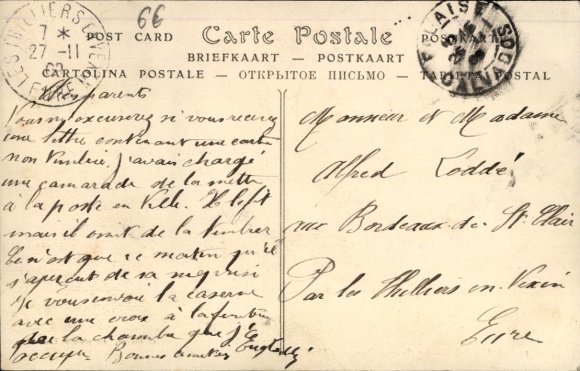 6€
LES THILLIERS EN VEXIN
7 *
27 -11
EURE
FALAISE
CALVADOS
POST CARD Carte Postale POSTKARTE
BRIEFKAART — POSTKAART
CARTOLINA POSTALE — ОТКРЫТОЕ ПИСЬМО — TARJETA POSTAL
Mes parents
Vous m'excuserez si vous recevez
une lettre contenant une carte
non timbrée, j'avais chargé
une camarade de la mettre
à la poste en ville. Il l'eft
mais il omit de la timbrer
Ce n'est que ce matin qu'il
s'aperçut de sa méprise
Je vous envoie la caserne
avec une croix à la fenêtre
de la chambre que j'
occupe. Bonnes amitiés
Monsieur et Madame
Alfred Loddé
rue Bordeaux de St Clair
Par les Thilliers en Vexin
Eure